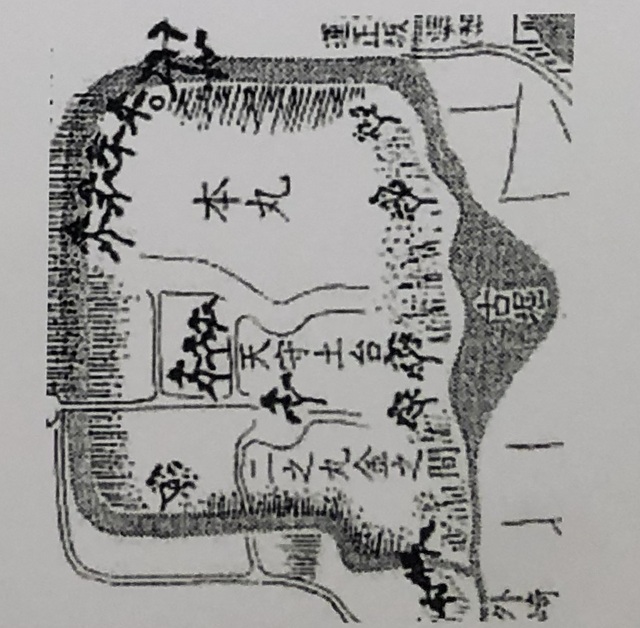 本丸
古堀
天守土台
二之丸金之間
外崎